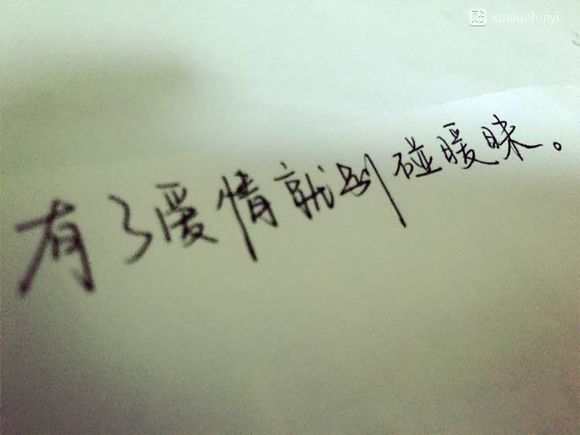 贴 xueluohuiyi
有了爱情就别碰暧昧。